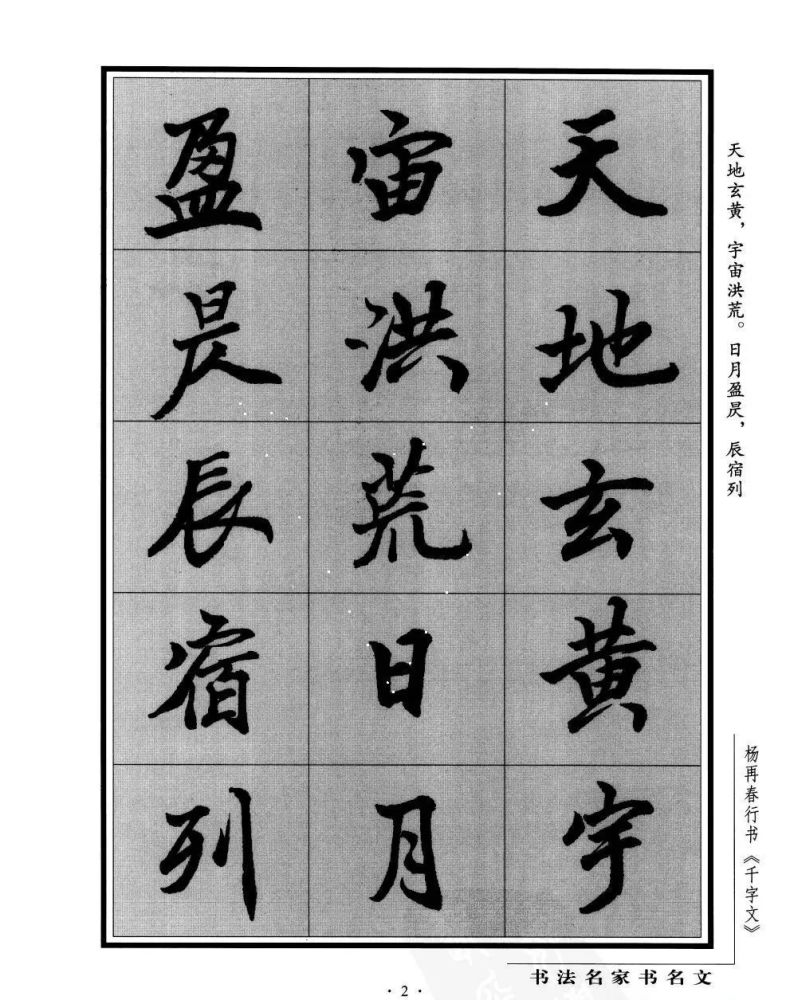 天地玄黄，宇宙洪荒。日月盈昃，辰宿列
天地玄黄宇
宙洪荒日月
盈昃辰宿列
杨再春行书《千字文》
书法名家书名文
·2·